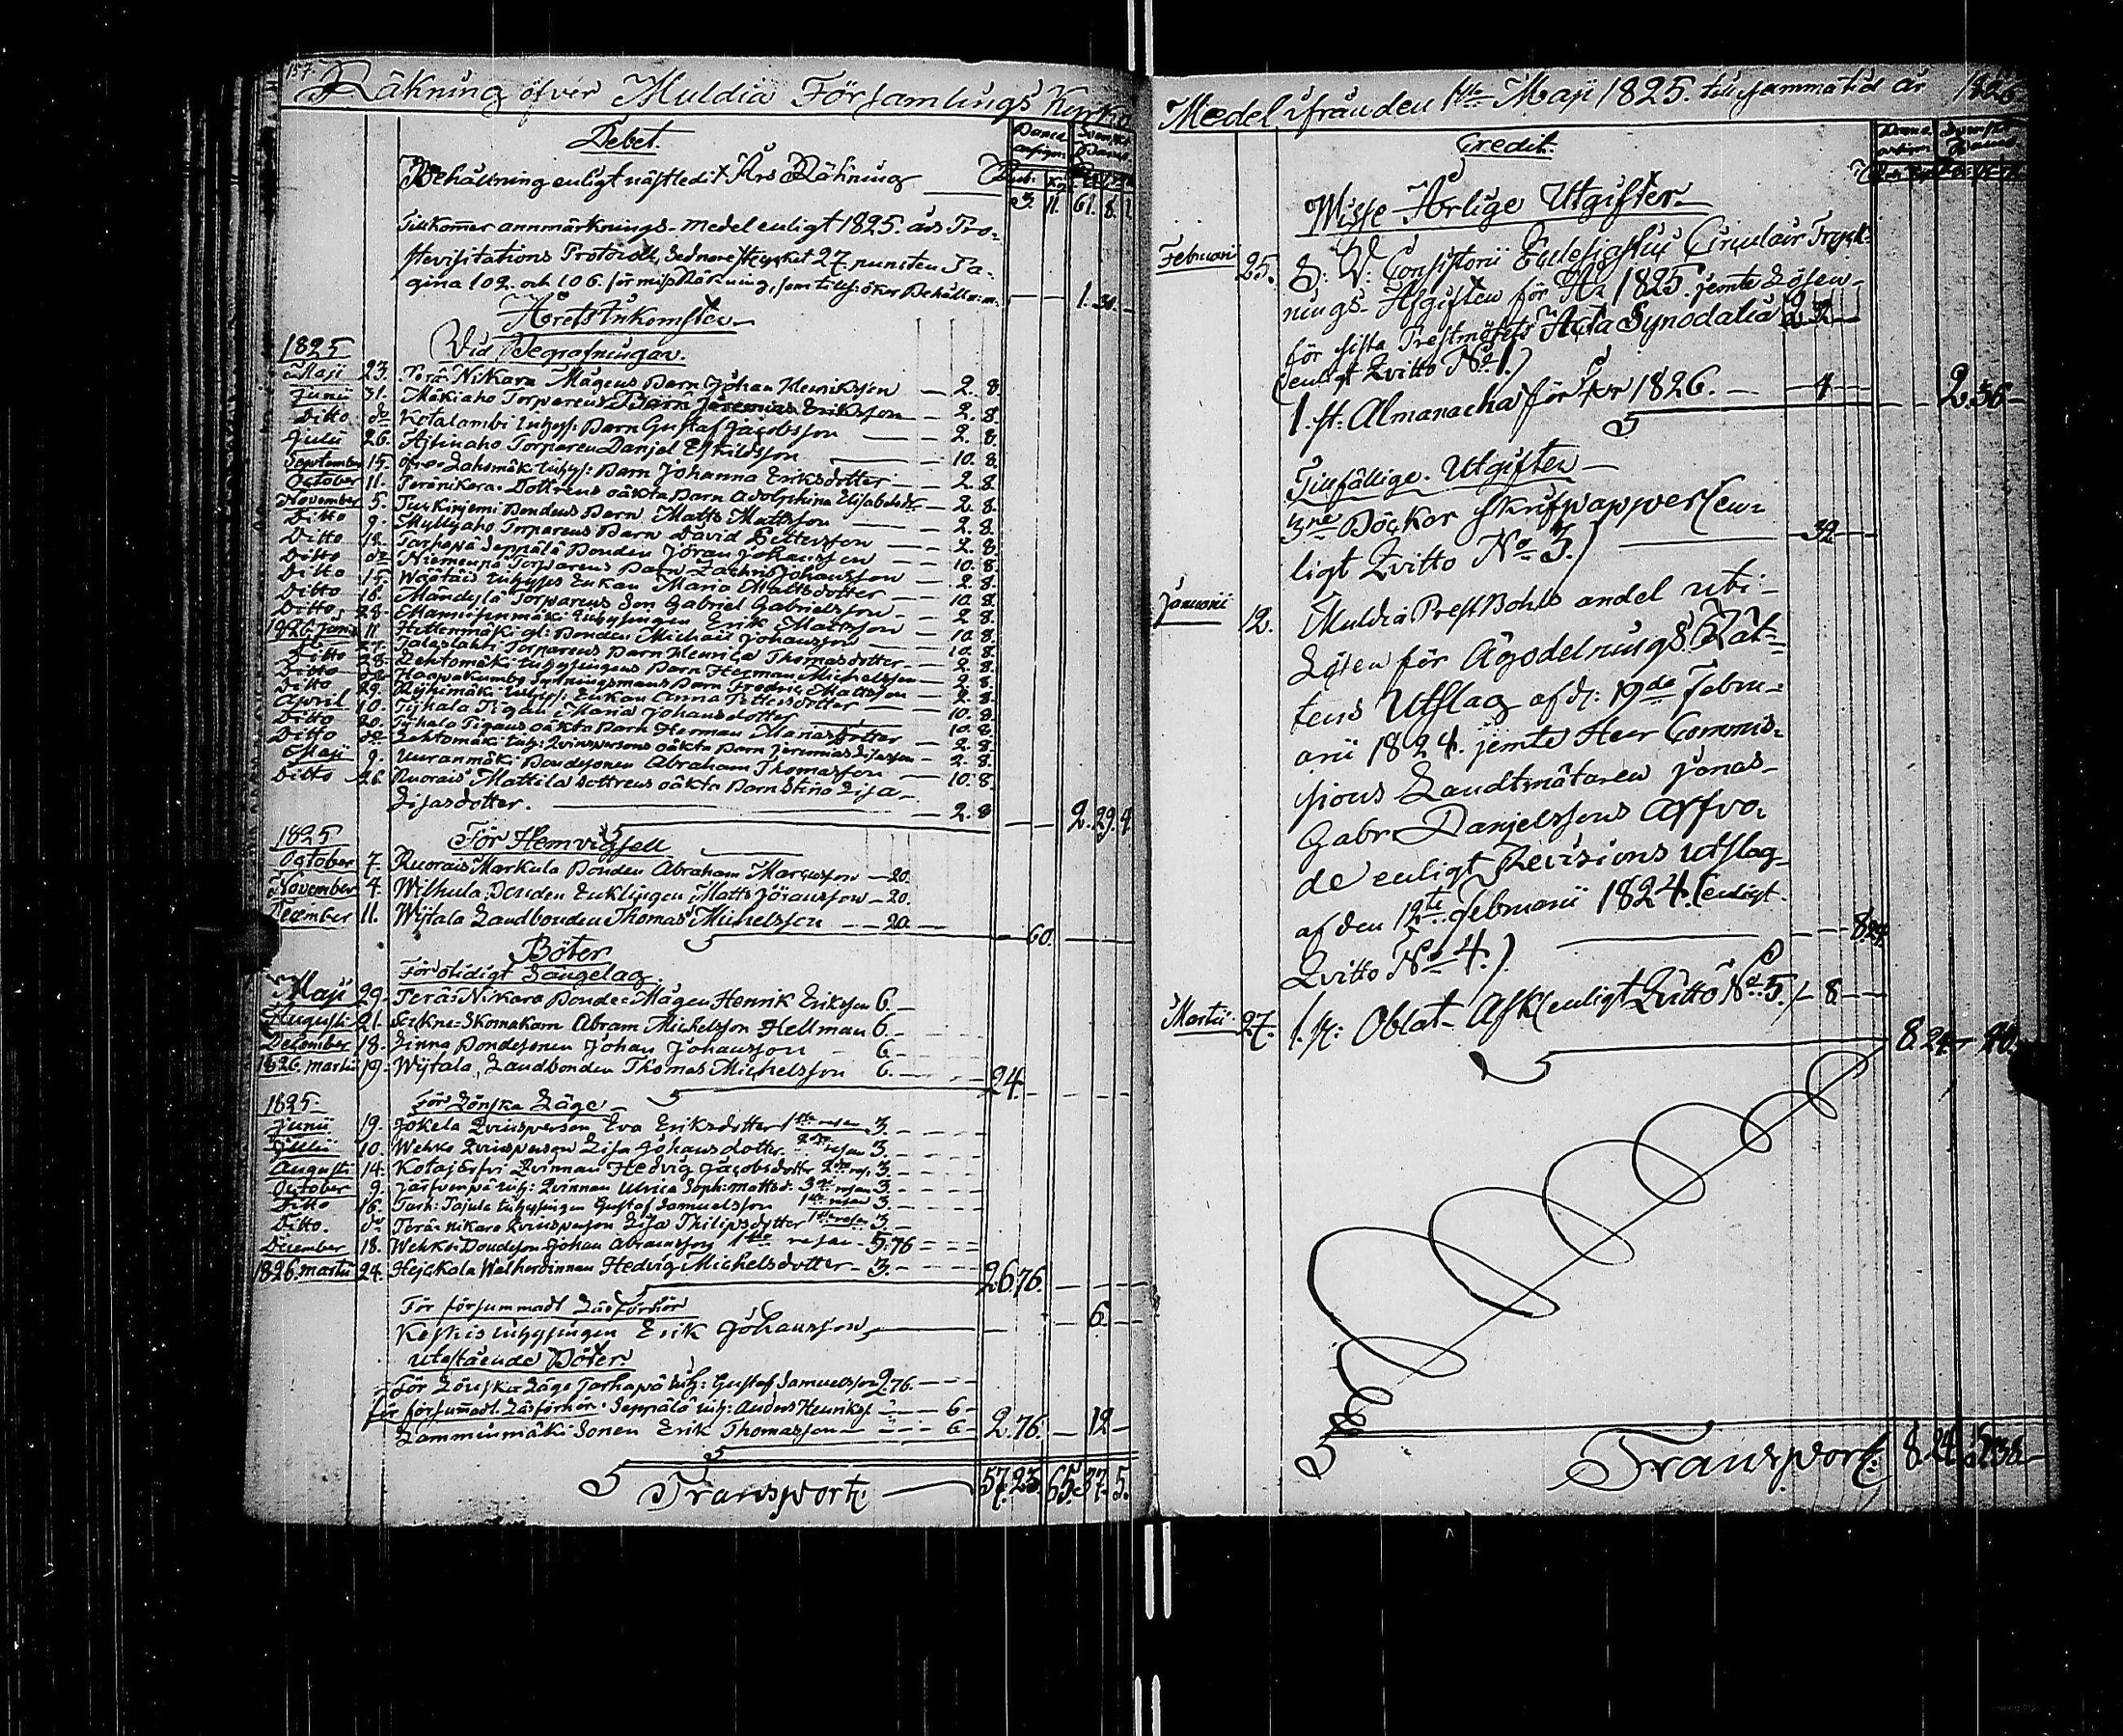 157.
Räkning öfver Muldia Församlings Kyrko
Debet.
Banco assign. Svenskt Banco
Behållning enligt nästledit Års Räkning — Rub. Kop.
3. 11. 61. 8. 1
Tillkommer annmärknings-medel enligt 1825. års Pro-
stevisitations Protocoll,
gina 102. och 106. för missräkning, som tillf. öker Behålln: m. — — 1. 31. —
Årets Inkomster —
1825 Vid Begrafningar.
Maji 23. Terä-Nikara Mågens Barn Johan Henriksson — 2. 8.
Junii 31. Mäkiaho Torparens Barn Jeremias Eriksson — 2. 8.
Ditto do Kotalambi Inhys: Barn Gustaf Jacobsson — 2. 8.
Julii 26. Torparen Danjel Eskildsson — 10. 8.
September 15. Lahomäki Inhys: Barn Johanna Eriksdotter — 2. 8.
October 11. Teränikara Dottrens oäkta Barn Adolphina Elisabetsdr — 2. 8.
November 5. Purkinjemi Bondens Barn Matts Mattsson — 2. 8.
Ditto 9. Myllyaho Torparens Barn David Pettersson — 2. 8.
Ditto 12. Tarhapä Seppälä Bonden Jöran Johansson — 10. 8.
Ditto do Niemenpä Torparens Barn Zachris Johansson — 2. 8.
Ditto 15. Inhyses Enkan Maria Mattsdotter — 10. 8.
Ditto 16. Mändylä Torparens Son Gabriel Gabrielsson — 2. 8.
Ditto 28. Inhysingen Erik Mattsson — 10. 8.
1826. Janu. 11. Huttenmäki gl: Bonden Michael Johansson — 10. 8.
Torparens Barn Henrica Thomasdotter — 2. 8.
Ditto 28. Lehtomäki Inhysingens Barn Herman Michelsson — 2. 8.
Ditto do Haapakumbu Barn Fredric Mattsson — 2. 8.
Ditto 29. Ryhimäki Inhys: Enkan Anna Pettersdotter — 10. 8.
April 10. Tyhala Pigan Maria Johansdotter — 10. 8.
Ditto 20. Tyhala Pigans oäkta Barn Herman Mariasdotter — 2. 8.
Ditto do Lehtomäki Inh: Qvinspersons oäkta Barn Jeremias Lisasson — 2. 8.
Maji 9. Uuranmäki Bondesonen Abraham Thomasson — 10. 8.
Ditto 26. Ruorais Mattila dottrens oäkta Barn Stina Lisa
Lisasdotter. — 2. 8
— — 2. 29. 4.
1825 För Hemvigsell
October 7. Ruorais Markula Bonden Abraham Marcusson — 20.
November 4. Wilhula Bonden Enklingen Matts Jöransson — 20.
December 11. Wijtala Landbonden Thomas Michelsson — 20. —
— 60. — — —
Böter
För otidigt Sängelag.
Maji 29. Terä-Nikara Bonde-Mågen Henrik Eriksson 6. —
Augusti 21. Sockne-Skomakarn Abram Michelsson Hellman 6. —
December 18. Linna Bondesonen Johan Johansson — 6. —
1826. Martii 19. Wijtala, Landbonden Thomas Michelsson 6. —
24. — — — —
1825. För Lönska Läge —
Junii 19. Jokela Qvinsperson Eva Eriksdotter 1sta resan 3. —
Julii 10. Wehko Qvinsperson Lisa Johansdotter 2dra resan 3. —
Augusti 14. Kotajärfvi Qvinnan Hedvig Jacobsdotter 2dra res. 3. —
October 9. Järfvenpä Inh: Qvinnan Ulrica Soph: Mattsd: 3dje resan 3. —
Ditto 16. Tarh: Pajula Inhysingen Gustaf Samuelsson 1sta resan 3. —
Ditto. do Terä-Nikara Qvinsperson Lisa Philipsdotter 1sta resan 3. —
December 18. Wehko-Bondeson Johan Abramsson 1sta resan — 5. 76
1826. Martii 24. Hejckala Hedvig Michelsdotter — 3. —
26. 76. — — —
För försummadt Läsförhör
Keskis Inhysingen Erik Johansson — 6. —
Utestående Böter.
För Lönska Läge Tarhapä Inh: Gustaf Samuelsson 2. 76. —
för försummadt Läsförhör. Seppälä Inh: Anders Henrikss. — 6 —
Lamminmäki Sonen Erik Thomasson — 6 — 2. 76. — 12 —
Transport. — 57. 23. 65. 37. 5.
Medel ifrån den 1sta Maji 1825. till samma tid år 1826
Credit.
Wisse Årlige Utgifter —
Februarii 25. H: W: Consistorii Ecclesiastici Circulair Tryck-
nings-Afgiften för År 1825. jemte Lösen
för sista Prestmötets Acta Synodalia
(enligt Qvitto No 1.)
1. st: Almanacka för År 1826. — — 4 — —
— 2. 36 —
Tillfällige Utgifter —
3ne Böcker Skrifpapper (en-
ligt Qvitto No 3.) — 32 — —
Januarii 12. Muldia Prest Bohls andel uti
Lösen för Ägodelnings Rät-
tens Utslag af d: 19de Febru-
arii 1824. jemte Herr Commis-
sions Landtmätaren Jonas
Gabr: Danjelssons Arfvo-
de enligt Revisions Utslag
af den 12te Februarii 1824. (enligt
Qvitto No 4.) — — — 8. 24
Martii 27. 1. st: Oblat-Ask (enligt Qvitto No 5.) — 8 — —
8. 24. — 40. —
Transport. 8. 24.